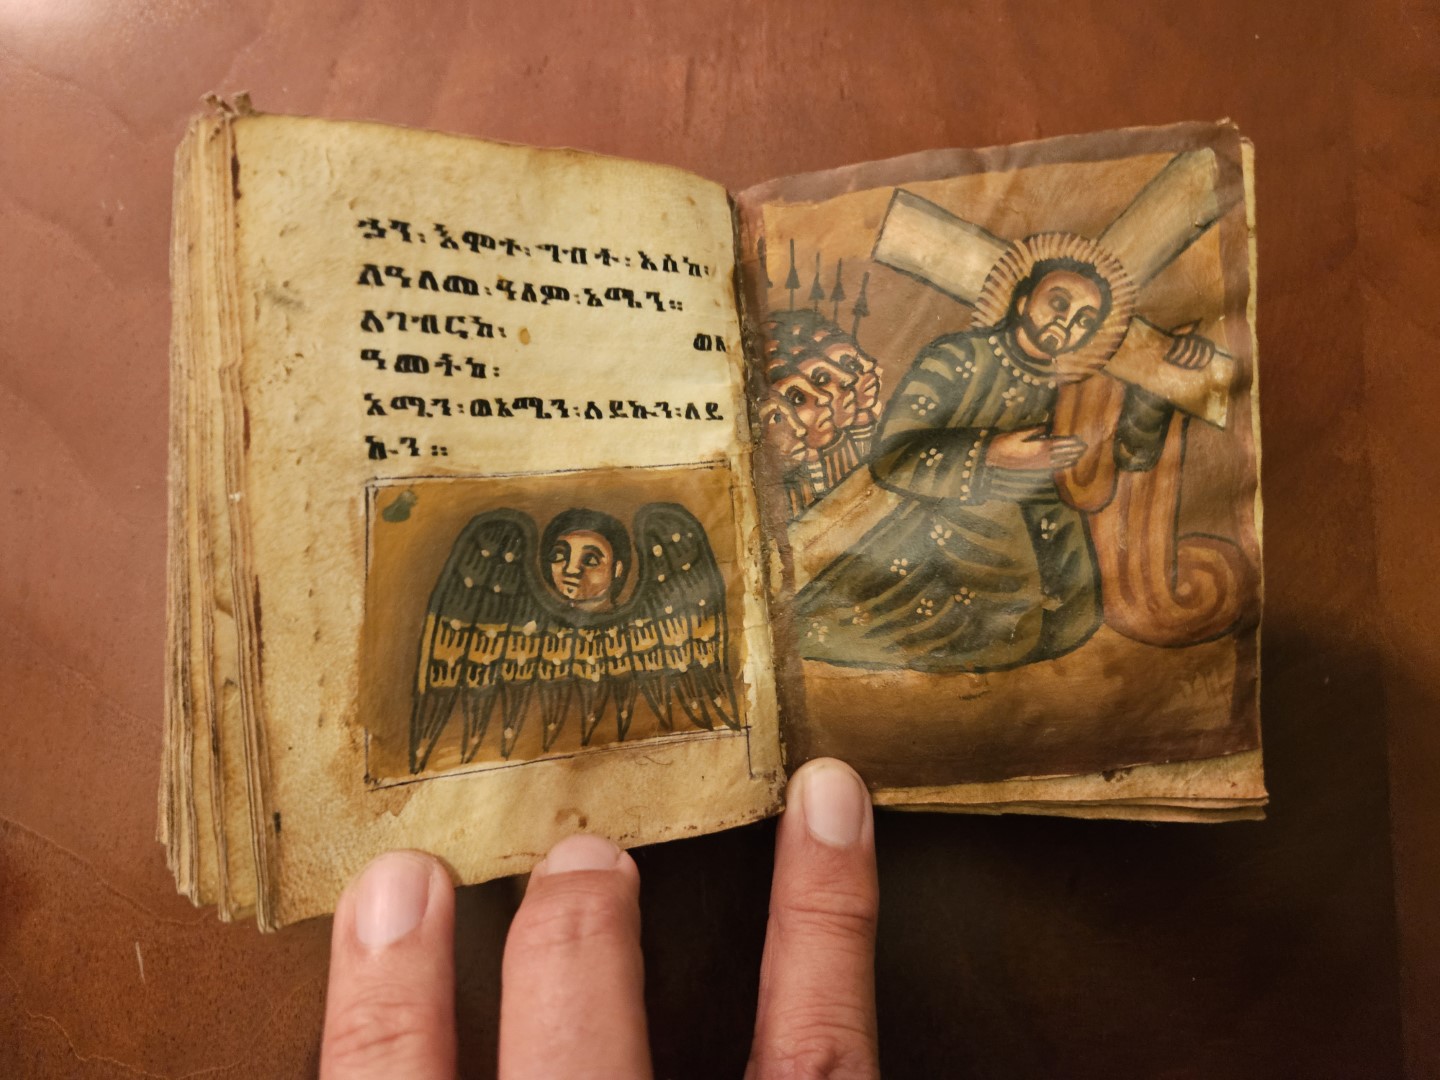 ኃን፡እሞተ፡ግብት፡እስከ፡
ለዓለመ፡ዓለም፡አሜን።
ለገብርከ፡ ወለ
ዓመትከ፡
አሜን፡ወአሜን፡ለይኩን፡ለይ
ኩን።